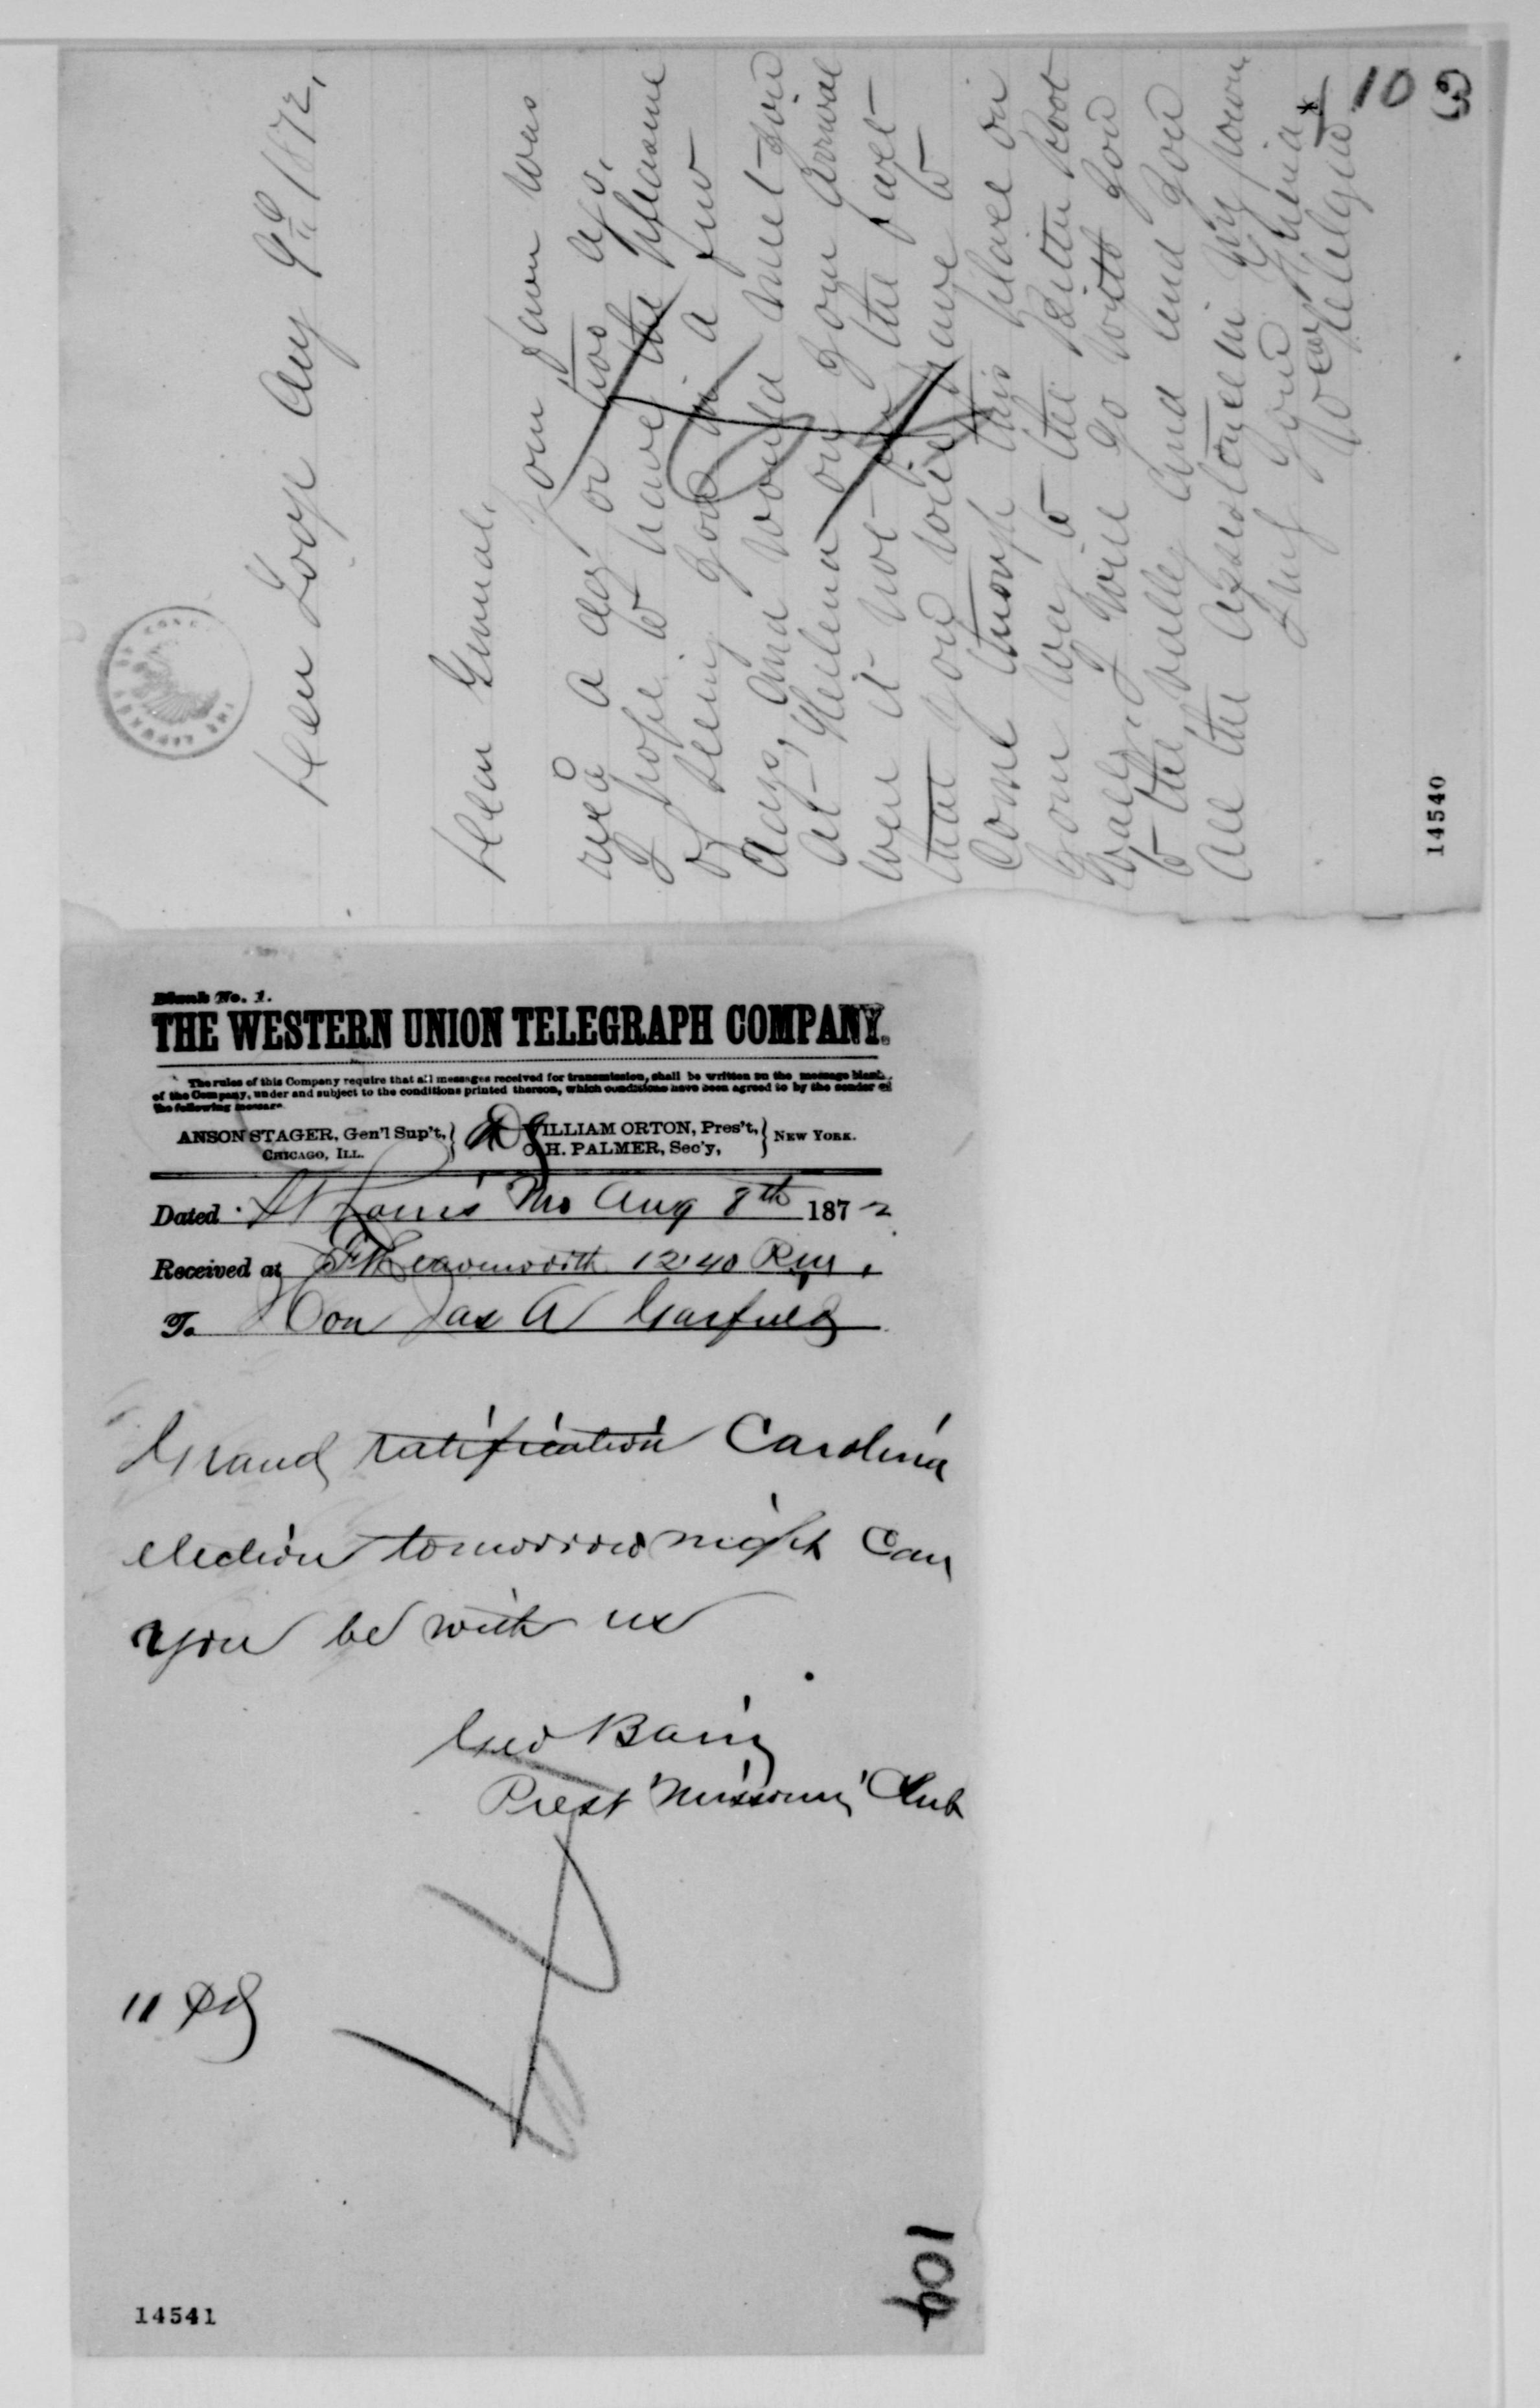 Deer Lodge Aug 9th 1872,
Dear General,
Your favor was
rec'd a day or two ago,
I hope to have the pleasure
of seeing you in a few
days, and would meet you
at Helena on your arrival
were it not for the fact
that you will have to
come through this place on
your way to the Bitter Root
valley. I will go with you
to the valley and lend you
all the assistance in my power
Truly Your friend
W H Clagett
103
14540
Blank No. 1.
THE WESTERN UNION TELEGRAPH COMPANY.
The rules of this Company require that all messages received for transmission, shall be written on the message blanks
of the Company, under and subject to the conditions printed thereon, which conditions have been agreed to by the sender of
the following message.
ANSON STAGER, Gen'l Sup't, WILLIAM ORTON, Pres't, NEW YORK.
CHICAGO, ILL. O. H. PALMER, Sec'y,
Dated St Louis Mo Aug 8th 1872
Received at Ft Leavenworth 12.40 Pm.
To Hon Jas A Garfield
Grand ratification Carolina
election tomorrow night Can
you be with us
Geo Bain
Prest Missouri Club
11 Pd
104
14541